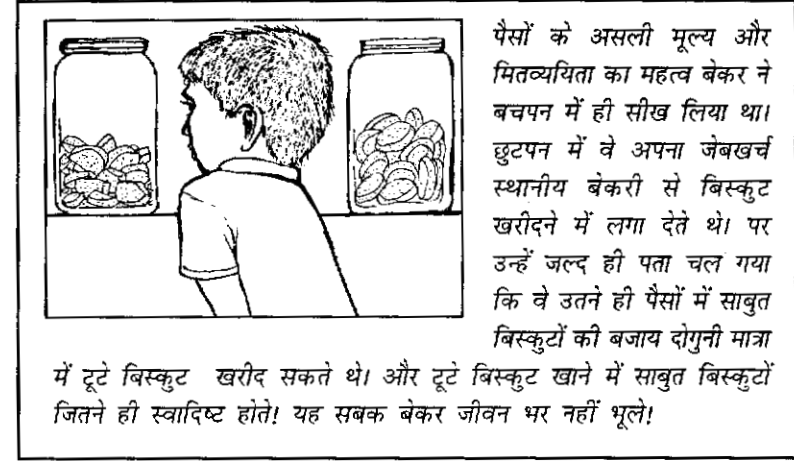 पैसों के असली मूल्य और
मितव्ययिता का महत्व बेकर ने
बचपन में ही सीख लिया था।
छुटपन में वे अपना जेबखर्च
स्थानीय बेकरी से बिस्कुट
खरीदने में लगा देते थे। पर
उन्हें जल्द ही पता चल गया
कि वे उतने ही पैसों में साबुत
बिस्कुटों की बजाय दोगुनी मात्रा
में टूटे बिस्कुट खरीद सकते थे। और टूटे बिस्कुट खाने में साबुत बिस्कुटों
जितने ही स्वादिष्ट होते! यह सबक बेकर जीवन भर नहीं भूले!